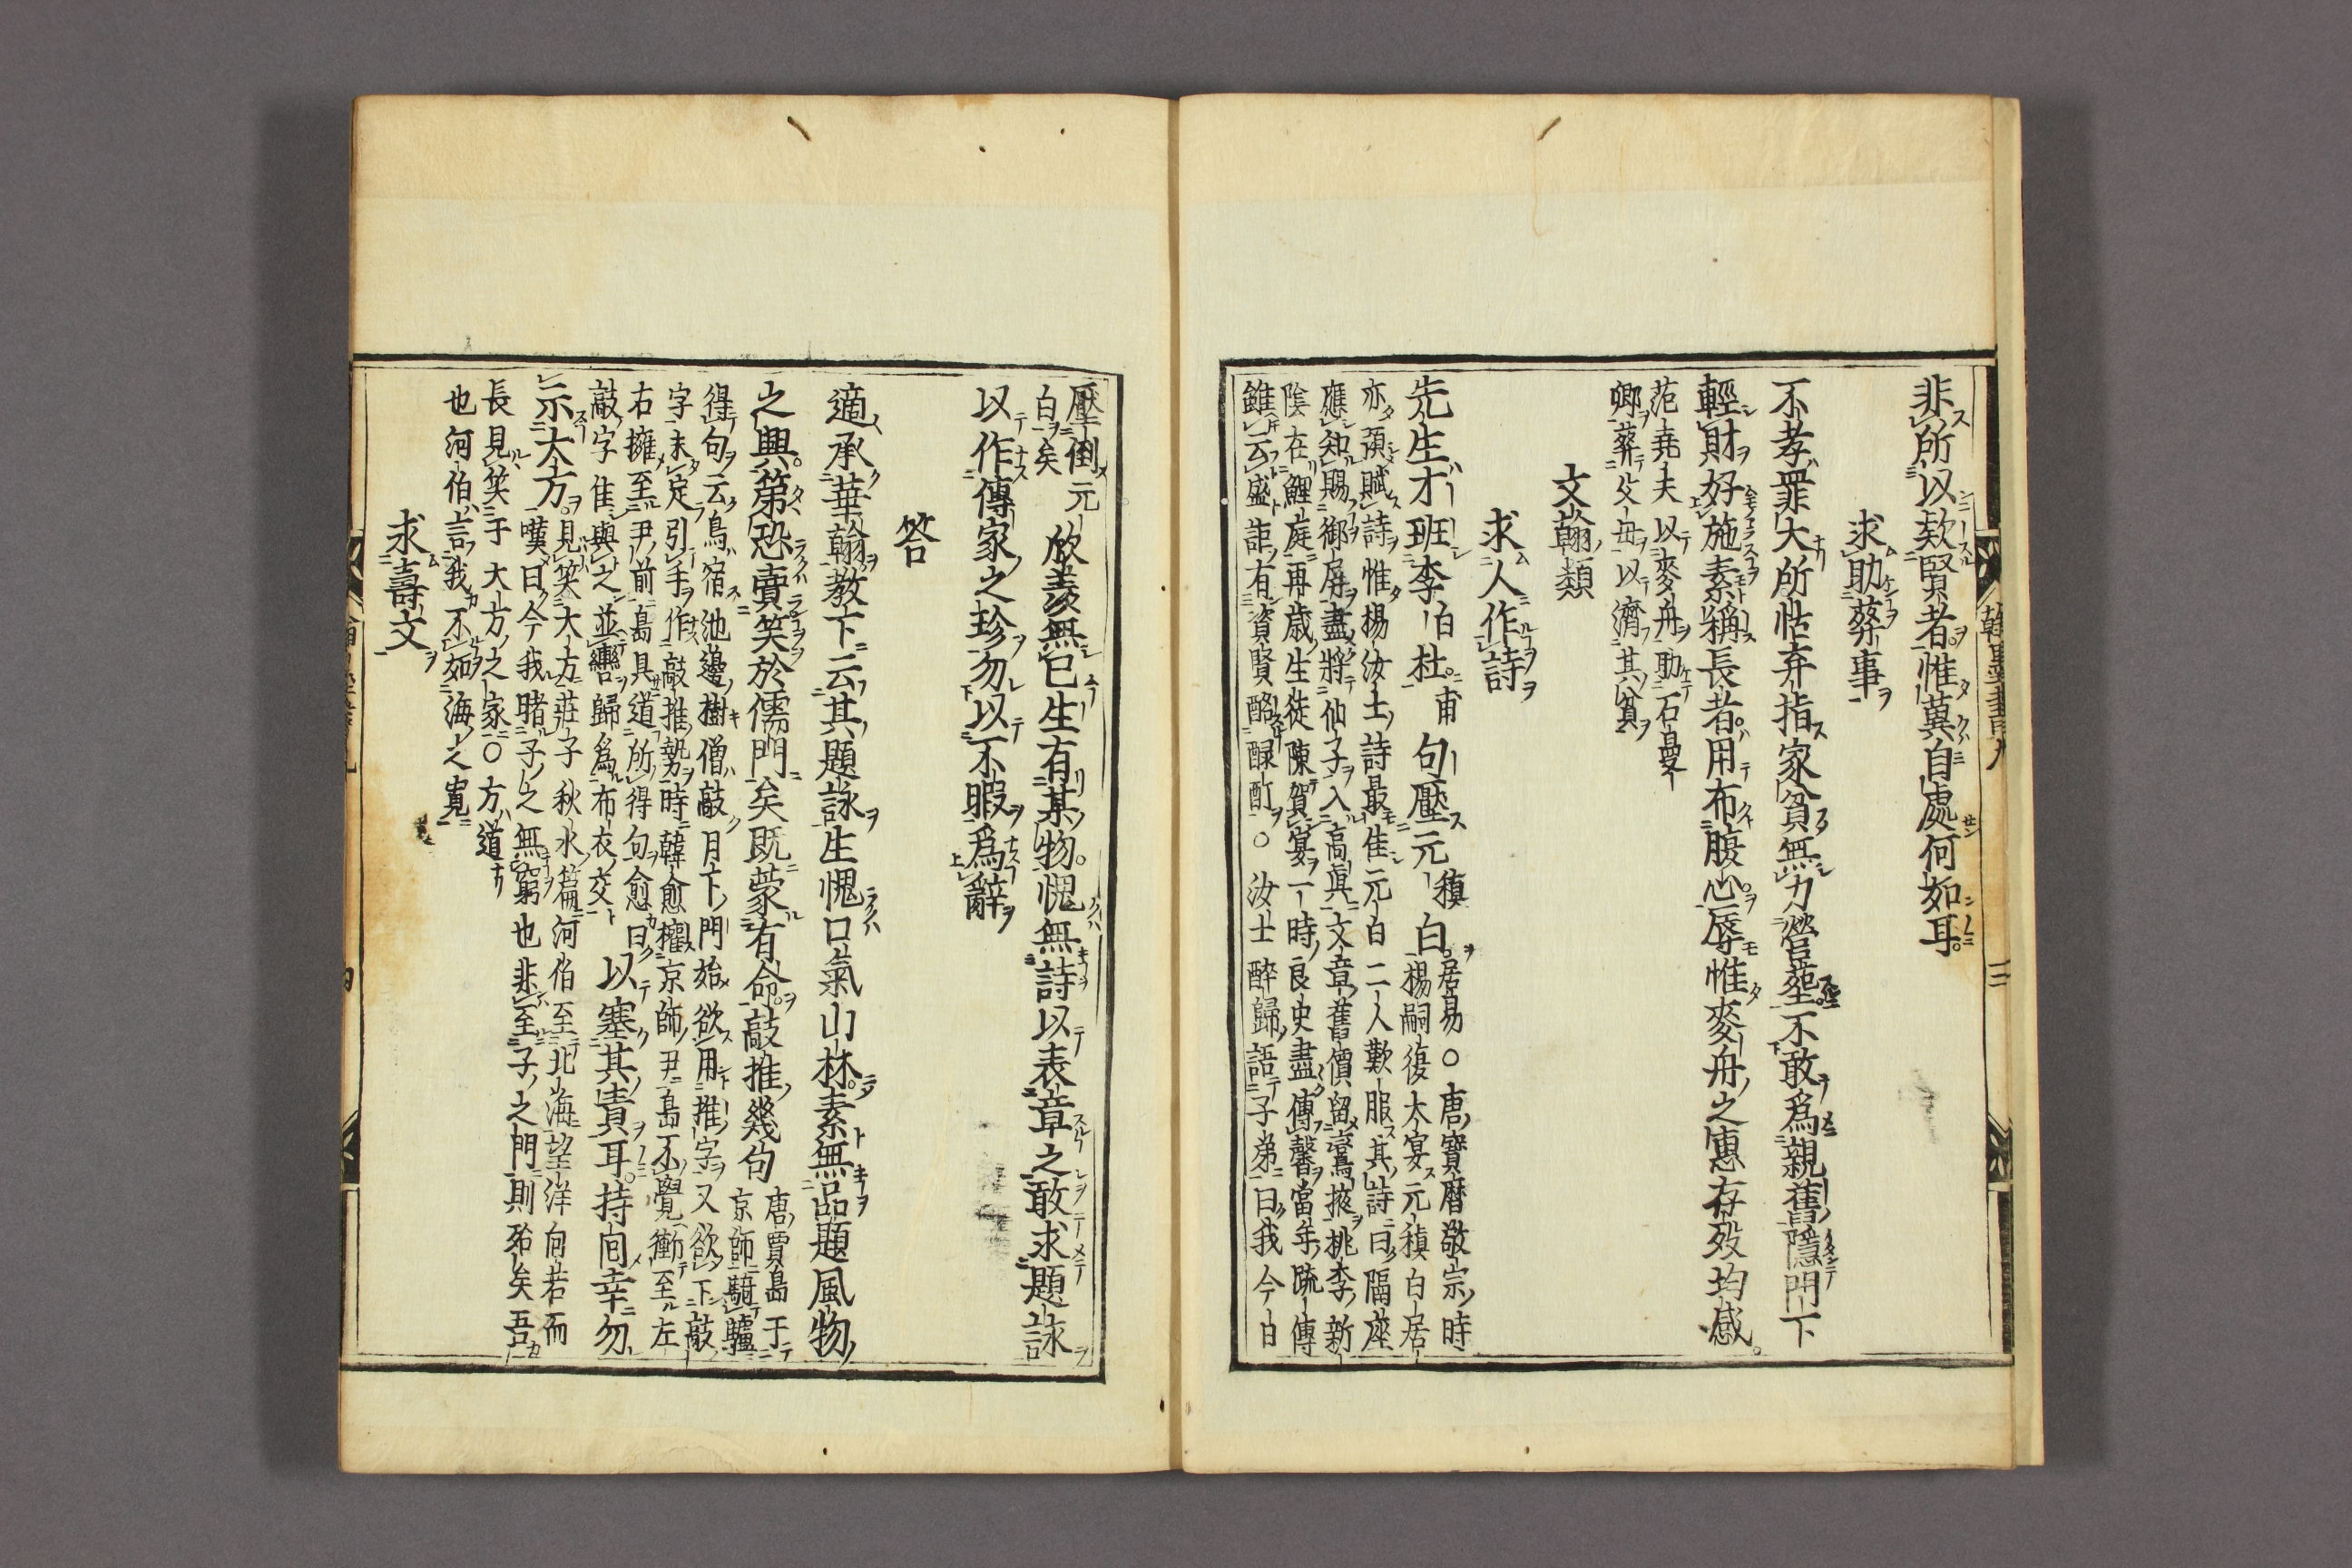 非所以欵賢者惟冀自處何如耳
求助葬事
不孝罪大所怙弃指家貧無力營塟不敢爲親舊隱門下
輕財好施素稱長者用布腹心辱惟麥舟之惠存殁均感
范堯夫以麥舟助石曼
卿葬父母以濟其貧
文翰類
求人作詩
先生才班李白杜甫句壓元稹白居易○唐寶曆敬宗時
楊嗣復大宴元稹白居
亦預賦詩惟楊汝士詩最佳元白二人歎服其詩曰隔座
應知賜御屏盡將仙子入高眞文章舊價留鸞掖桃李新
陰在鯉庭再歳生徒陳賀宴一時良史盡傳馨當年疏傳
雖云盛詎有資賢酩醁酊○汝士醉歸語子弟曰我今日
壓倒元
白矣
放羨無已生有某物愧無詩以表章之敢求題詠
以作傳家之珍勿以不暇爲辭
答
適承華翰教下云其題詠生愧口氣山林素無品題風物
之興第恐賣笑於儒門矣既蒙有命敲推幾句
唐賈島于
京師騎驢
得句云鳥宿池邊樹僧敲月下門始欲用推字又欲下敲
字未定引手作敲推勢時韓愈權京師尹島不覺衝至左
右擁至尹前島具道所得句愈曰
敲字佳與之並轡歸爲布衣交
以塞其責耳持囘幸勿
示大方
見笑大方莊子秋水篇河伯至北海望洋向若而
嘆曰今我睹子之無窮也非至子之門則殆矣吾
長見笑于大方之家○方道
也河伯言我不如海之寛
求壽文
翰墨書九
三